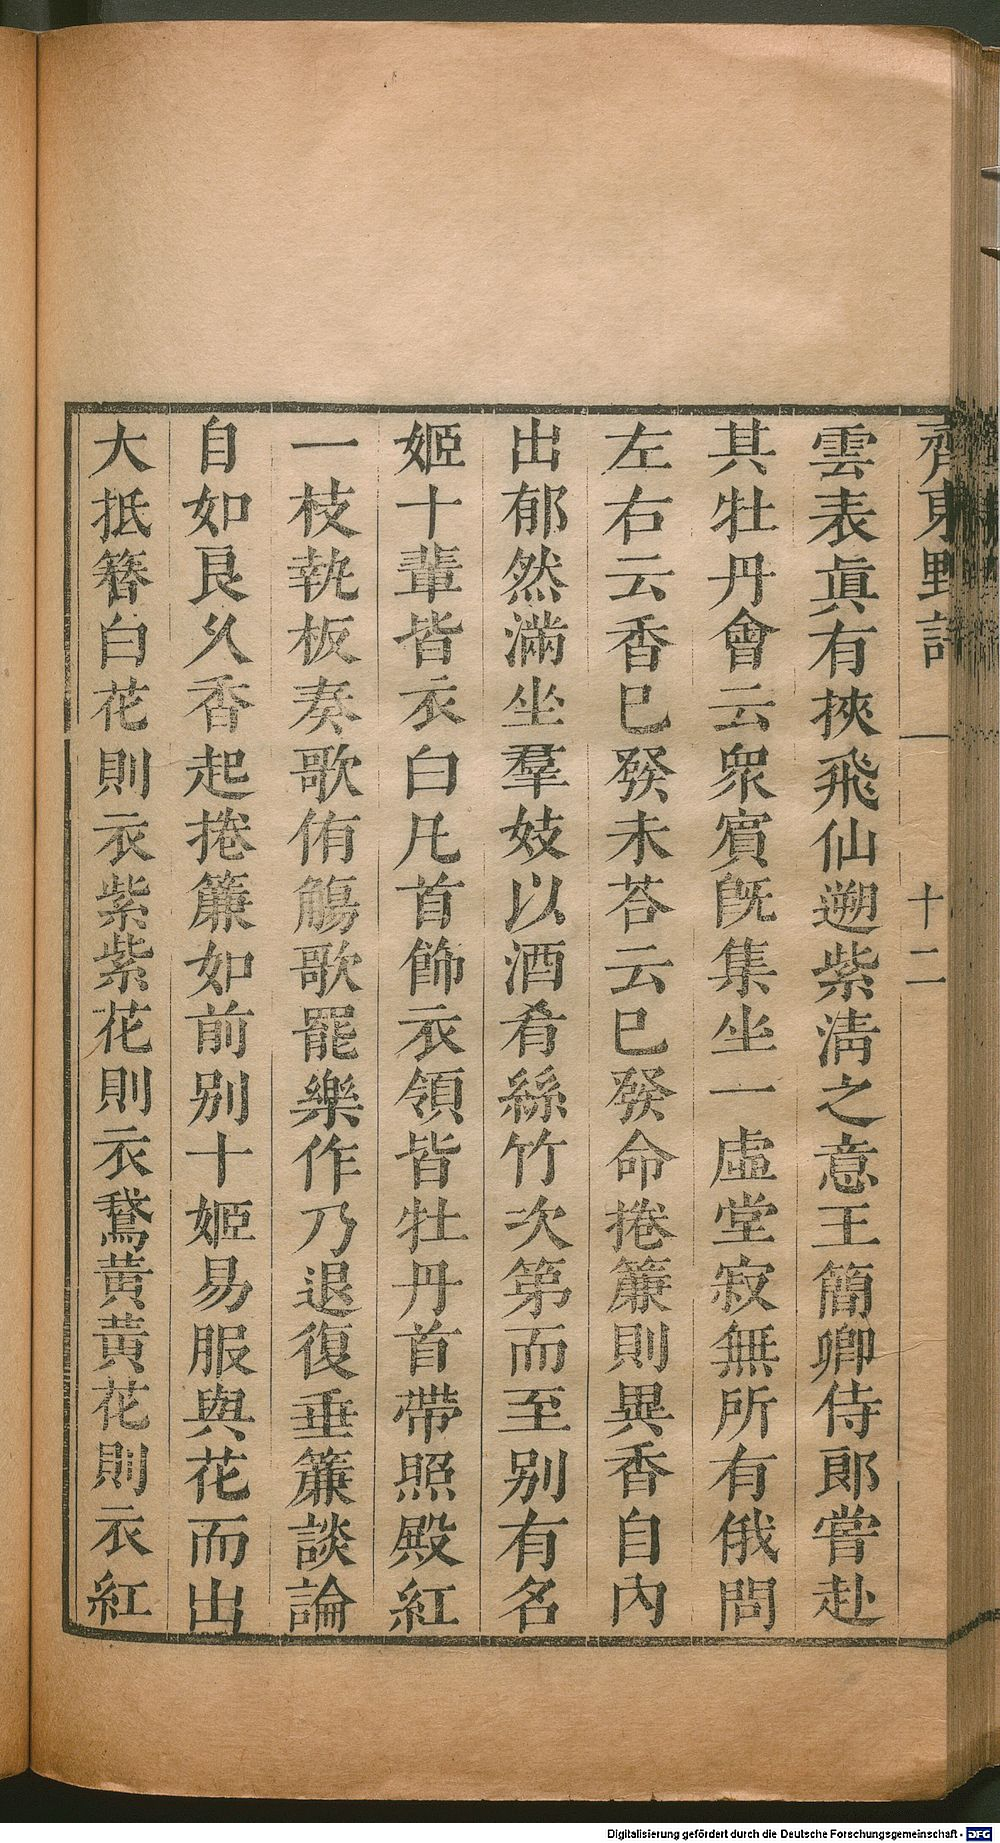 齊東野語
十二
雲表眞有挾飛仙遡紫淸之意王簡卿侍郎嘗赴
其牡丹會云衆賓旣集坐一虛堂寂無所有俄問
左右云香已發未荅云已發命捲簾則異香自內
出郁然滿坐羣妓以酒肴絲竹次第而至别有名
姬十輩皆衣白凡首飾衣領皆牡丹首帶照殿紅
一枝執板奏歌侑觴歌罷樂作乃退復垂簾談論
自如良久香起捲簾如前别十姬易服與花而出
大抵簪白花則衣紫紫花則衣鵞黃黃花則衣紅
Digitalisierung gefördert durch die Deutsche Forschungsgemeinschaft - DFG